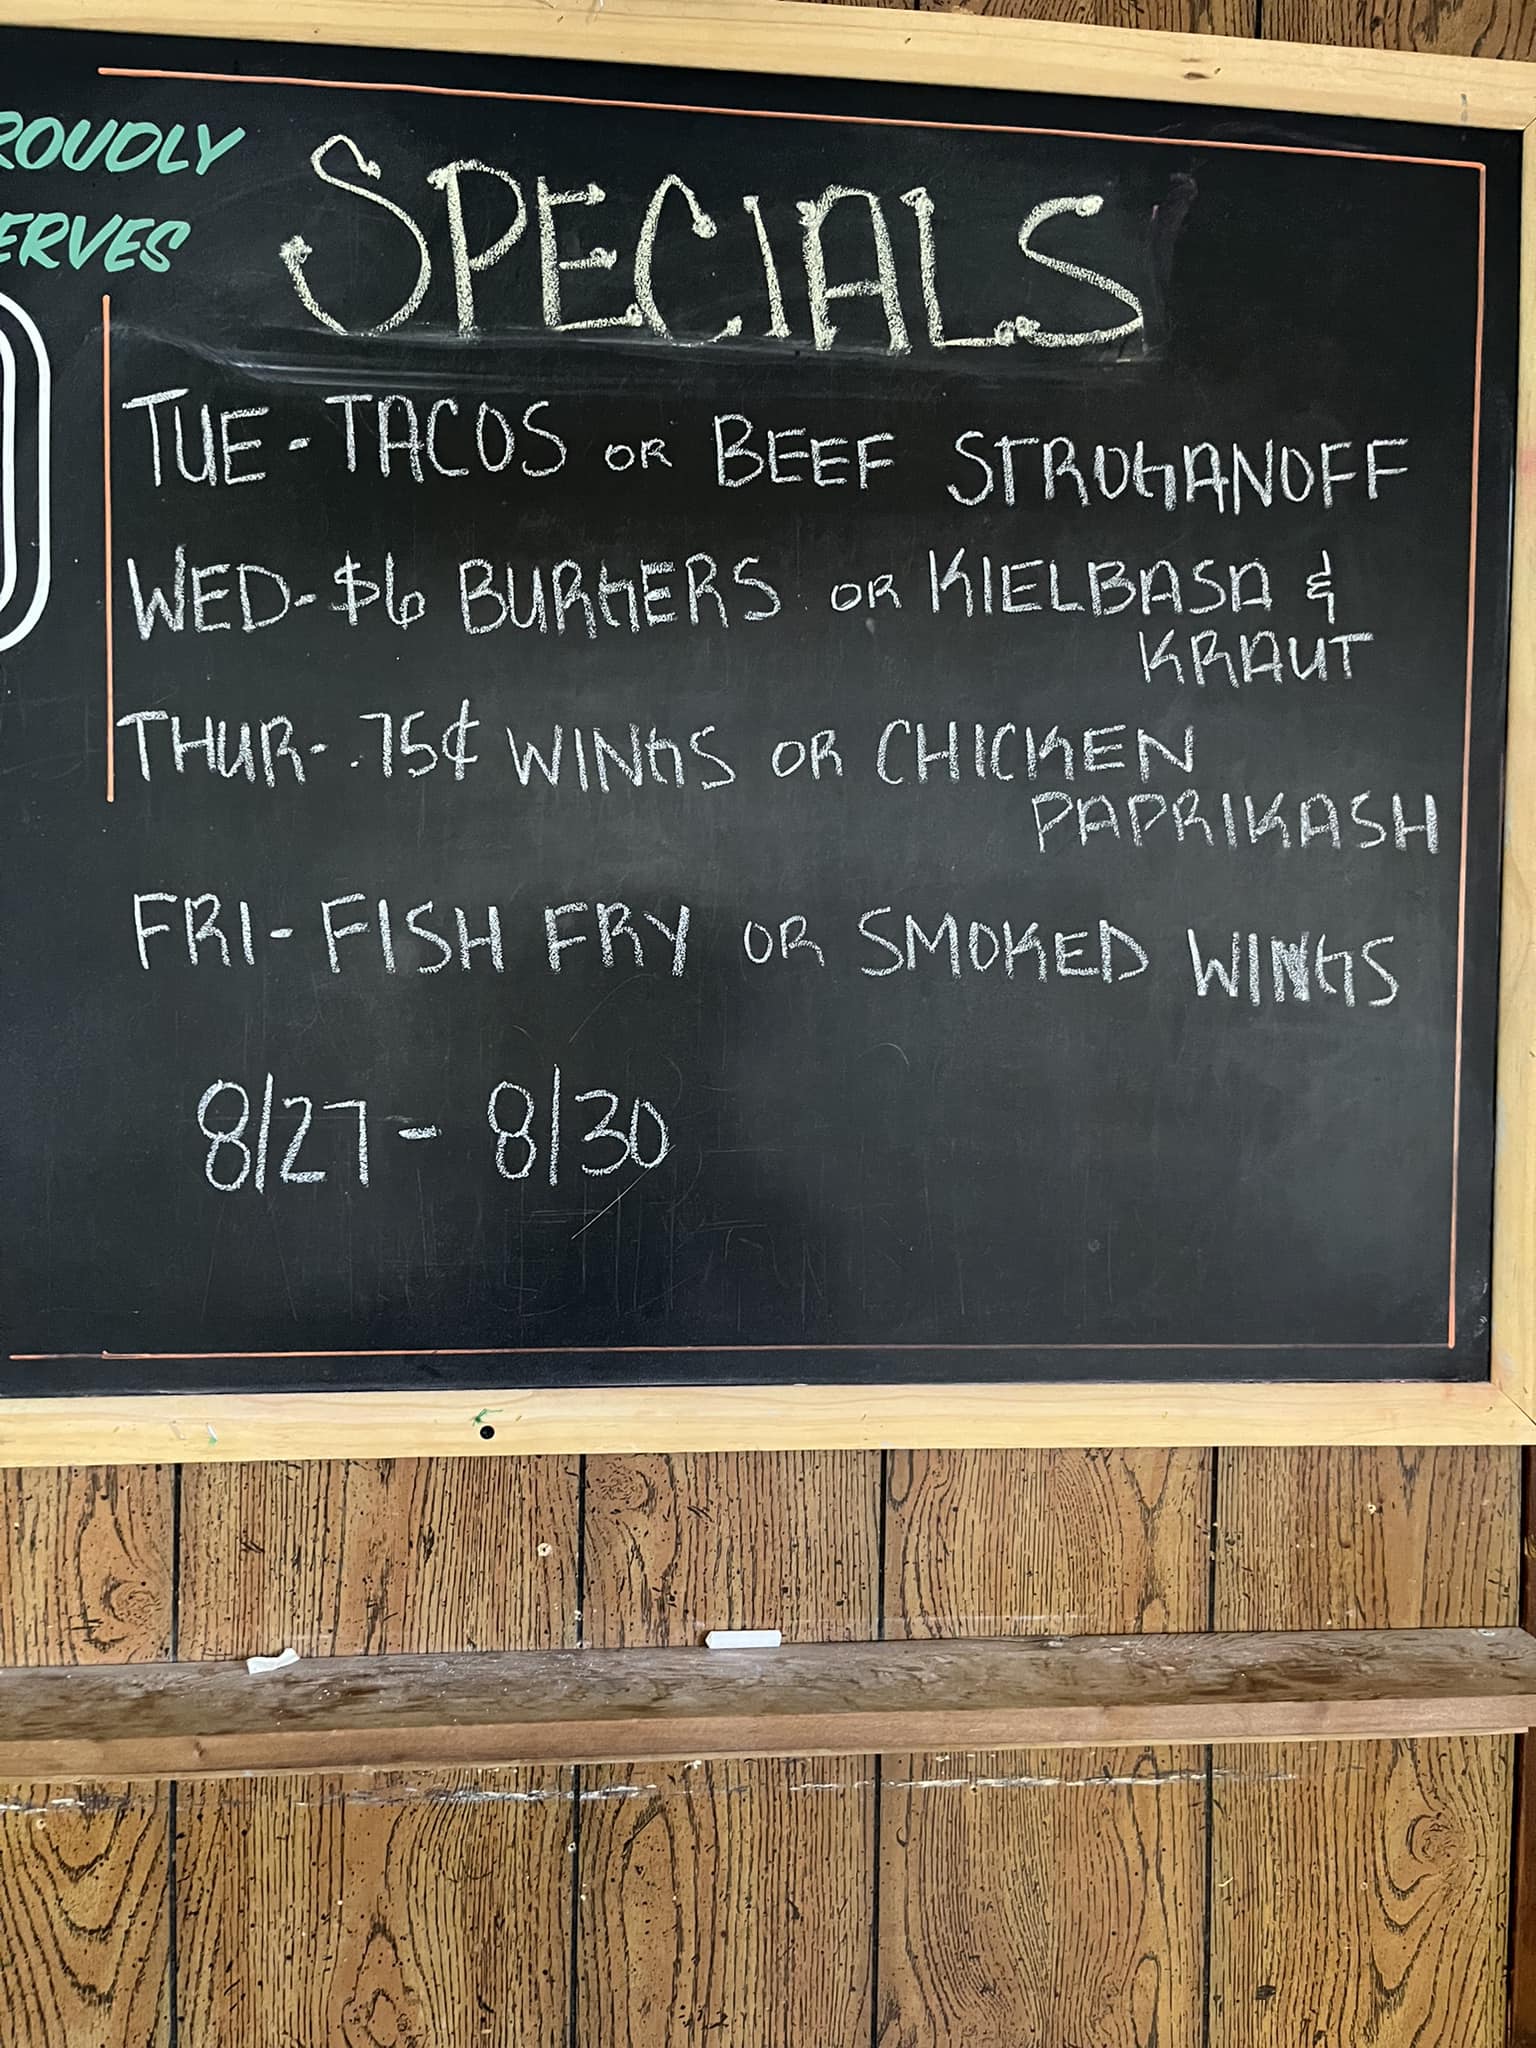 ROUDLY
ERVES
SPECIALS
TUE - TACOS OR BEEF STROGANOFF
WED - $6 BURGERS OR KIELBASA &
KRAUT
THUR - .75¢ WINGS OR CHICKEN
PAPRIKASH
FRI - FISH FRY OR SMOKED WINGS
8/27 - 8/30